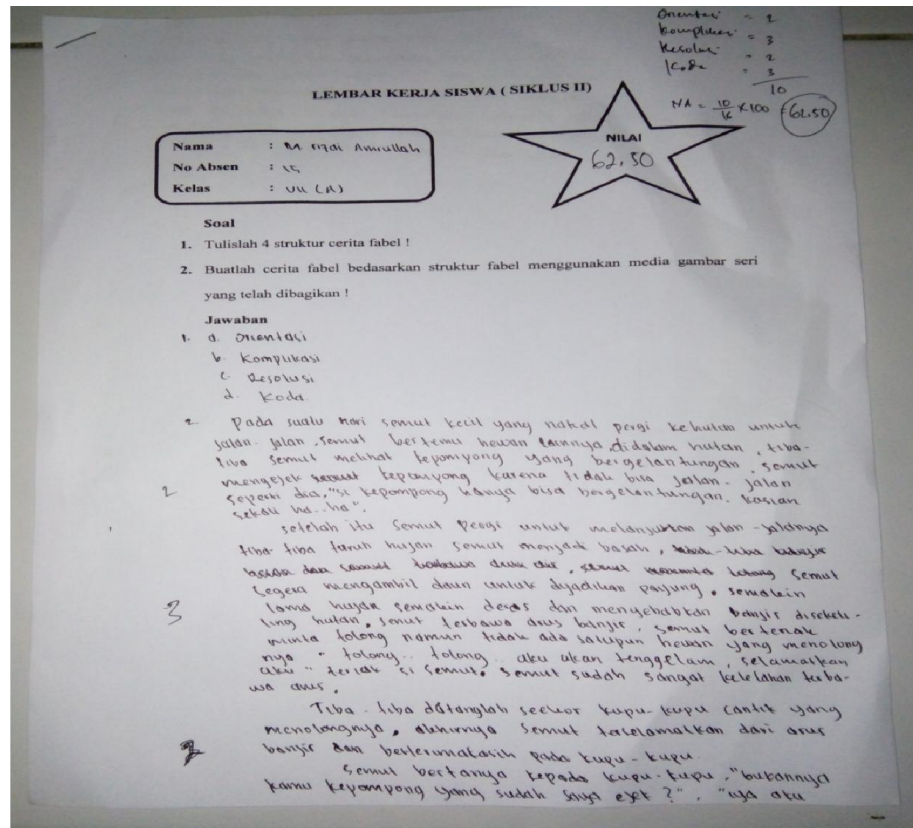 Orientasi = 2
Komplikasi = 3
Resolusi = 2
Koda = 3
10
NA = 10/16 x 100 = 62.50
LEMBAR KERJA SISWA ( SIKLUS II)
NILAI
62.50
Nama : M. rizai Amrullah
No Absen : 15
Kelas : VII (A)
Soal
1. Tulislah 4 struktur cerita fabel !
2. Buatlah cerita fabel bedasarkan struktur fabel menggunakan media gambar seri
yang telah dibagikan !
Jawaban
1. a. Orientasi
b. Komplikasi
c. Resolusi
d. Koda
2. Pada suatu hari semut kecil yang nakal pergi kehutan untuk
jalan-jalan. semut bertemu hewan lainnya didalam hutan, tiba-
tiba semut melihat kepompong yang bergelantungan, semut
mengejek kepompong karena tidak bisa jalan-jalan
seperti dia, "si kepompong hanya bisa bergelantungan. kasian
2
sekali ha..ha".
setelah itu semut pergi untuk melanjutkan jalan-jalannya
tiba-tiba turuh hujan semut menjadi basah,
semut
segera mengambil daun untuk dijadikan payung. semakin
lama hujan semakin deras dan menyebabkan banjir disekeli-
3
ling hutan. semut terbawa arus banjir. semut berteriak
minta tolong namun tidak ada satupun hewan yang menolong
nya " tolong.. tolong.. aku akan tenggelam, selamatkan
aku " teriak si semut. semut sudah sangat kelelahan terba-
wa arus.
Tiba-tiba datanglah seekor kupu-kupu cantik yang
menolongnya, akhirnya semut terselamatkan dari arus
2
banjir dan berterimakasih pada kupu-kupu.
semut bertanya kepada kupu-kupu, "bukannya
kamu kepompong yang sudah saya ejek ?". "iya aku